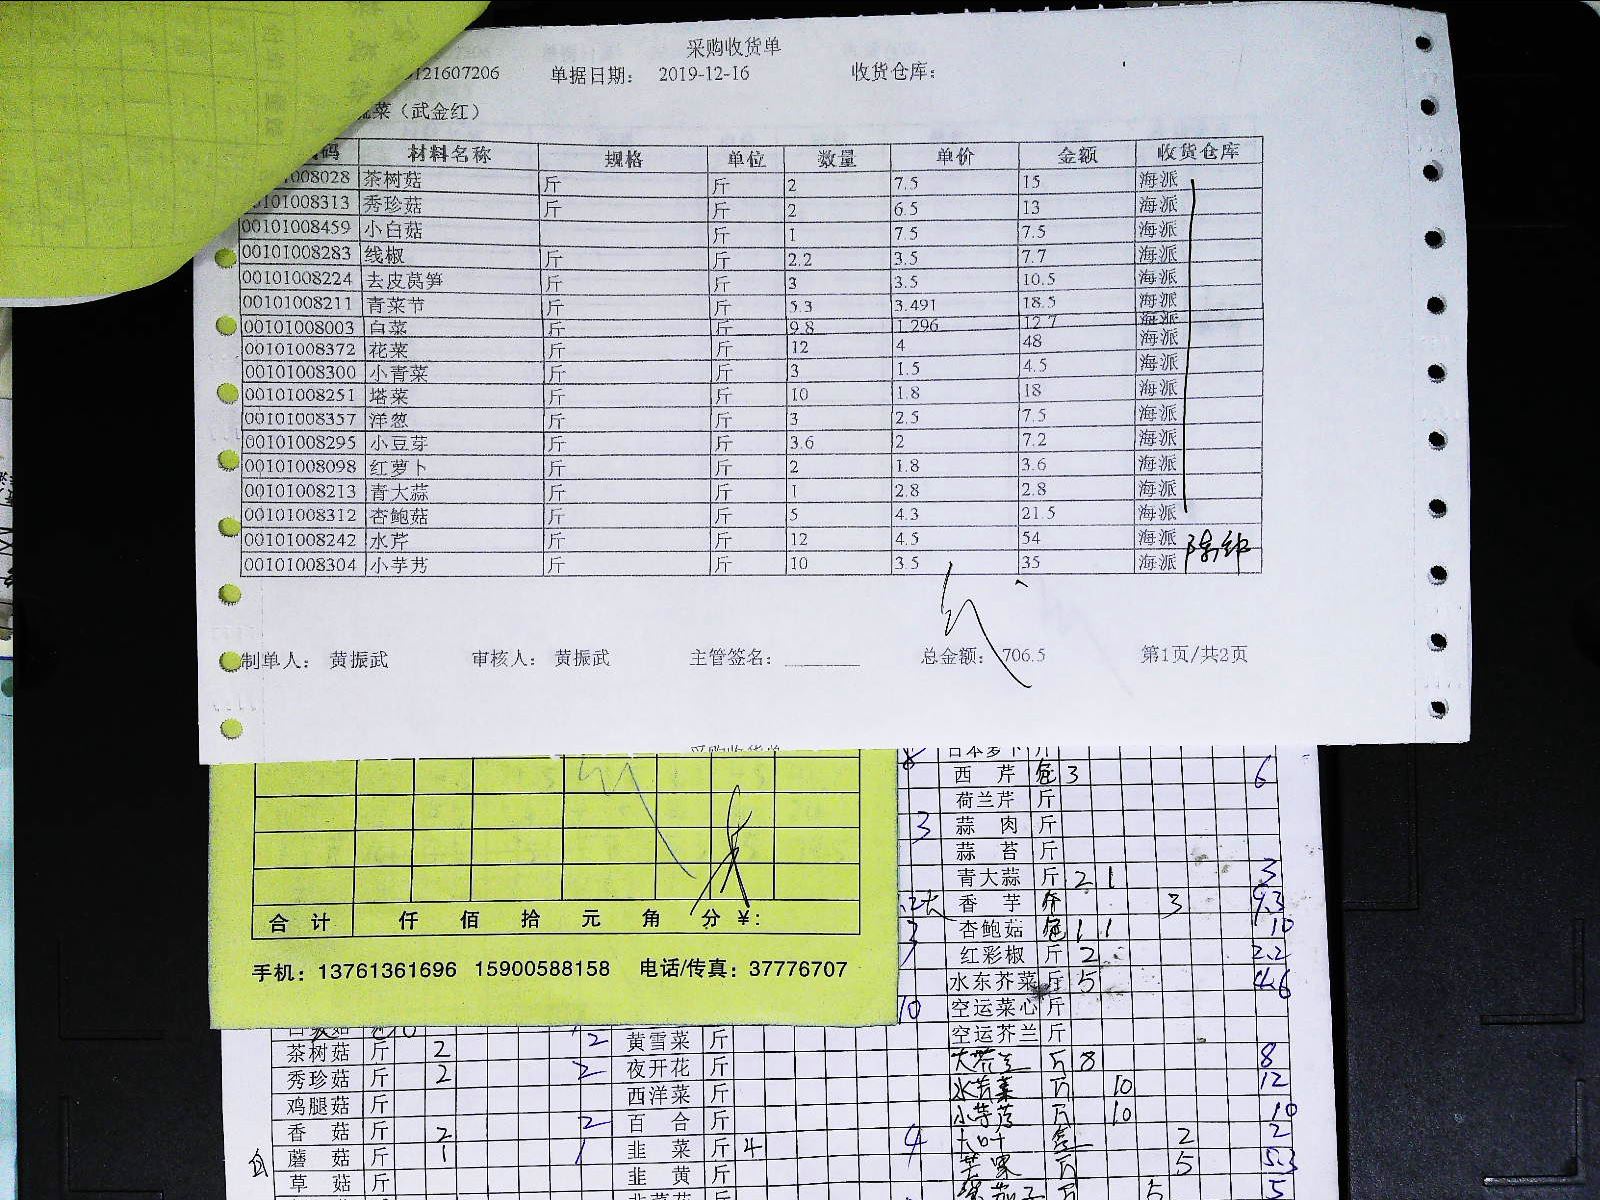 采购收货单
121607206 单据日期: 2019-12-16 收货仓库:
菜（武金红）
码 材料名称 规格 单位 数量 单价 金额 收货仓库
01008028 茶树菇 斤 斤 2 7.5 15 海派
0101008313 秀珍菇 斤 斤 2 6.5 13 海派
00101008459 小白菇 斤 1 7.5 7.5 海派
00101008283 线椒 斤 斤 2.2 3.5 7.7 海派
00101008224 去皮莴笋 斤 斤 3 3.5 10.5 海派
00101008211 青菜节 斤 斤 5.3 3.491 18.5 海派
00101008003 白菜 斤 斤 9.8 1.296 12.7 海派
00101008372 花菜 斤 斤 12 4 48 海派
00101008300 小青菜 斤 斤 3 1.5 4.5 海派
00101008251 塔菜 斤 斤 10 1.8 18 海派
00101008357 洋葱 斤 斤 3 2.5 7.5 海派
00101008295 小豆芽 斤 斤 3.6 2 7.2 海派
00101008098 红萝卜 斤 斤 2 1.8 3.6 海派
00101008213 青大蒜 斤 斤 1 2.8 2.8 海派
00101008312 杏鲍菇 斤 斤 5 4.3 21.5 海派
00101008242 水芹 斤 斤 12 4.5 54 海派
00101008304 小芋艿 斤 斤 10 3.5 35 海派
制单人: 黄振武 审核人: 黄振武 主管签名: 总金额: 706.5 第1页/共2页
合计 仟 佰 拾 元 角 分 ¥:
手机: 13761361696 15900588158 电话/传真: 37776707
西芹 3 6
荷兰芹 斤
3 蒜肉 斤
蒜苔 斤
青大蒜 斤 2 1 3
香芋 3 9.3
杏鲍菇 1 1 10
红彩椒 斤 2 2.2
水东芥菜 斤 5 4.6
10 空运菜心 斤
空运芥兰 斤
8 8
10 12
10 10
2 2
5 5.3
5 5
茶树菇 斤 2 2 黄雪菜 斤
秀珍菇 斤 2 2 夜开花 斤
鸡腿菇 斤 西洋菜 斤
香菇 斤 2 2 百合 斤
蘑菇 斤 1 1 韭菜 斤 4 4
草菇 斤 韭黄 斤